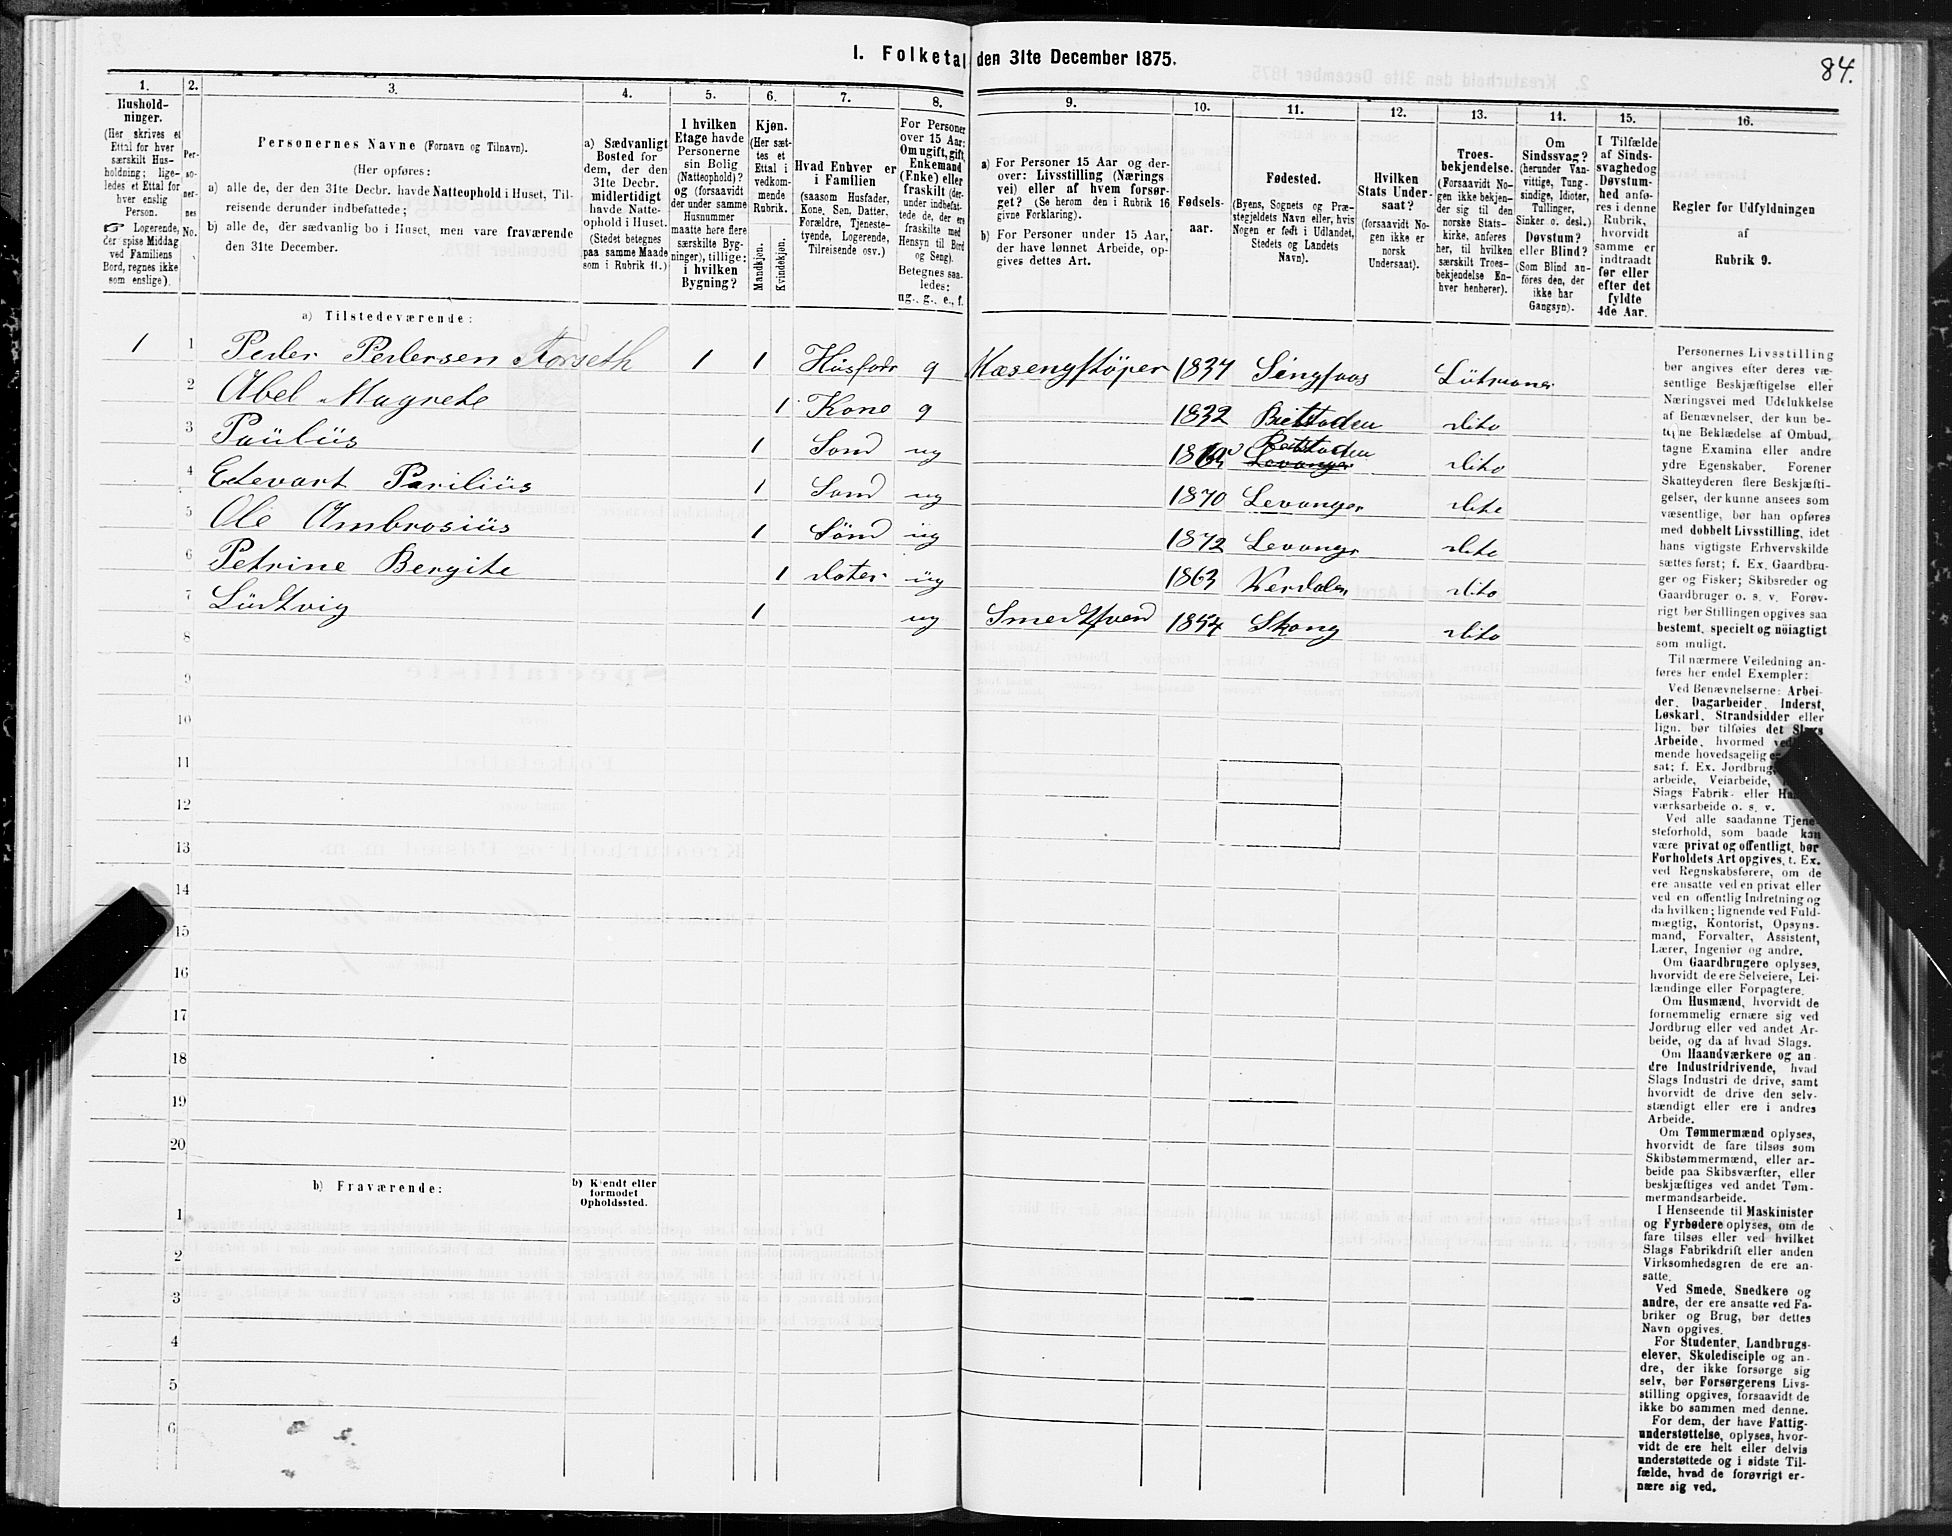 84.
I. Folketal den 31te December 1875.
1. 2. 3. 4. 5. 6. 7. 8. 9. 10. 11. 12. 13. 14. 15. 16.
Hushold-
ninger.
(Her skrives et
Ettal for hver
særskilt Hus-
holdning; lige-
ledes et Ettal for
hver enslig
Person.
☞ Logerende,
der spise Middag
ved Familiens
Bord, regnes ikke
som enslige).
Per-
so-
ner-
nes
No.
Personernes Navne (Fornavn og Tilnavn).
(Her opføres:
a) alle de, der den 31te Decbr. havde Natteophold i Huset, Til-
reisende derunder indbefattede;
b) alle de, der sædvanlig bo i Huset, men vare fraværende
den 31te December.
a) Sædvanligt
Bosted for
dem, der den
31te Decbr.
midlertidigt
havde Natte-
ophold i Huset.
(Stedet betegnes
paa samme Maade
som i Rubrik 11.)
I hvilken
Etage havde
Personerne
sin Bolig
(Natteophold)?
og (forsaavidt
der under samme
Husnummer
maatte høre flere
særskilte Byg-
ninger), tillige:
i hvilken
Bygning?
Kjøn.
(Her sæt-
tes et
Ettal i
vedkom-
mende
Rubrik.
Mandkjøn.
Kvindekjøn.
Hvad Enhver er
i Familien
(saasom Husfader,
Kone, Søn, Datter,
Forældre, Tjeneste-
tyende, Logerende,
Tilreisende osv.)
For Personer
over 15 Aar:
Om ugift, gift,
Enkemand
(Enke) eller
fraskilt (der-
under indbefat-
tede de, der ere
fraskilte med
Hensyn til Bord
og Seng).
Betegnes saa-
ledes:
ug., g., e., f.
a) For Personer 15 Aar og der-
over: Livsstilling (Nærings
vei) eller af hvem forsør-
get? (Se herom den i Rubrik 16
givne Forklaring).
b) For Personer under 15 Aar,
der have lønnet Arbeide, op-
gives dettes Art.
Fødsels-
aar.
Fødested.
(Byens, Sognets og Præ-
stegjeldets Navn eller, hvis
Nogen er født i Udlandet,
Stedets og Landets
Navn).
Hvilken
Stats Under-
saat?
(forsaavidt No-
gen ikke er
norsk
Undersaat).
Troes-
bekjendelse.
(Forsaavidt No-
gen ikke bekjen-
der sig til den
norske Stats-
kirke, anføres
her, til hvilken
særskilt Troes-
bekjendelse En-
hver henhører).
Om
Sindssvag?
(herunder Van-
vittige, Tung-
sindige, Idioter,
Tullinger,
Sinker o. desl.)
Døvstum?
eller Blind?
(Som Blind an-
föres den, der
ikke har
Gangsyn).
I Tilfælde
af Sinds-
svaghedog
Døvstum-
hed anfø-
res i denne
Rubrik,
hvorvidt
samme er
indtraadt
før eller
efter det
fyldte
4de Aar.
Regler for Udfyldningen
af
Rubrik 9.
a) Tilstedeværende:
1 1 Peder Pedersen Forseth 1 1 Husfader g Mæsengstöper 1834 Singsaas
2 Abel Magrete 1 Kone g 1832 Beitstaden dito
3 Paulüs 1 Sønd ug Beitstaden Levanger dito
4 Edevart 1 Sønd ug 1870 Levanger dito
5 Ole Ambrosiüs 1 Sønd üg 1872 Levanger dito
6 Petrine Bergite 1 dater üg 1863 Werdalen dito
7 Lüdtvig 1 ug Smedtsvend 1854 dito
8
9
10
11
12
13
14
15
16
17
18
19
20
b) Fraværende:
b) Kjendt eller
formodet
Opholdssted.
1
2
3
4
5
6
Personernes Livsstilling
bør angives efter deres væ-
sentlige Beskjæftigelse eller
Næringsvei med Udelukkelse
af Benævnelser, der kun be-
tegne Beklædelse af Ombud,
tagne Examina eller andre
ydre Egenskaber. Forener
Skatteyderen flere Beskjæfti-
gelser, der kunne ansees som
væsentlige, bør han opføres
med dobbelt Livsstilling, idet
hans vigtigste Erhvervskilde
sættes først; f. Ex. Gaardbru-
ger og Fisker; Skibsreder og
Gaardbruger o. s. v. Forøv-
rigt bør Stillingen opgives saa
bestemt, specielt og nöiagtigt
som muligt.
Til nærmere Veiledning an-
føres her endel Exempler:
Ved Benævnelserne: Arbei-
der, Dagarbeider, Inderst,
Løskarl, Strandsidder eller
lign. bør tilføies det Slags
Arbeide, hvormed
mende hovedsagelig
sat; f. Ex. Jordbrug,
arbeide, Veiarbeide,
Slags Fabrik- eller
værksarbeide o. s. v.
Ved alle saadanne Tjene-
steforhold, som baade kan
være privat og offentligt, bør
Forholdets Art opgives, t. Ex.
ved Regnskabsførere, om de
ere ansatte ved en privat eller
ved en offentlig Indretning og
da hvilken; lignende ved Fuld-
mægtig, Kontorist, Opsyns-
mand, Forvalter, Assistent,
Lærer, Ingeniør og andre.
Om Gaardbrugere oplyses,
hvorvidt de ere Selveiere, Lei-
lændinge eller Forpagtere.
Om Husmænd, hvorvidt de
fornemmelig ernære sig ved
Jordbrug eller ved andet Ar-
beide, og da af hvad Slags.
Om Haandværkere og an
dre Industridrivende, hvad
Slags Industri de drive, samt
hvorvidt de drive den selv-
stændigt eller ere i andres
Arbeide.
Om Tømmermænd oplyses,
hvorvidt de fare tilsøs som
Skibstømmermænd, eller ar-
beide paa Skibsværfter, eller
beskjæftiges ved andet Tøm-
mermandsarbeide.
I Henseende til Maskinister
og Fyrbødere oplyses, om de
fare tilsøs eller ved hvilket
Slags Fabrikdrift eller anden
Virksomhedsgren de ere an-
satte.
Ved Smede, Snedkere og
andre, der ere ansatte ved Fa-
briker og Brug, bør dettes
Navn opgives.
For Studenter, Landbrugs-
elever, Skoledisciple og an-
dre, der ikke forsørge sig
selv, bør Forsørgerens Livs-
stilling opgives, forsaavidt de
ikke bo sammen med denne.
For dem, der have Fattig-
understøttelse, oplyses, hvor-
vidt de ere helt eller delvis
understøttede og i sidste Til-
fælde, hvad de forøvrigt er-
nære sig ved.